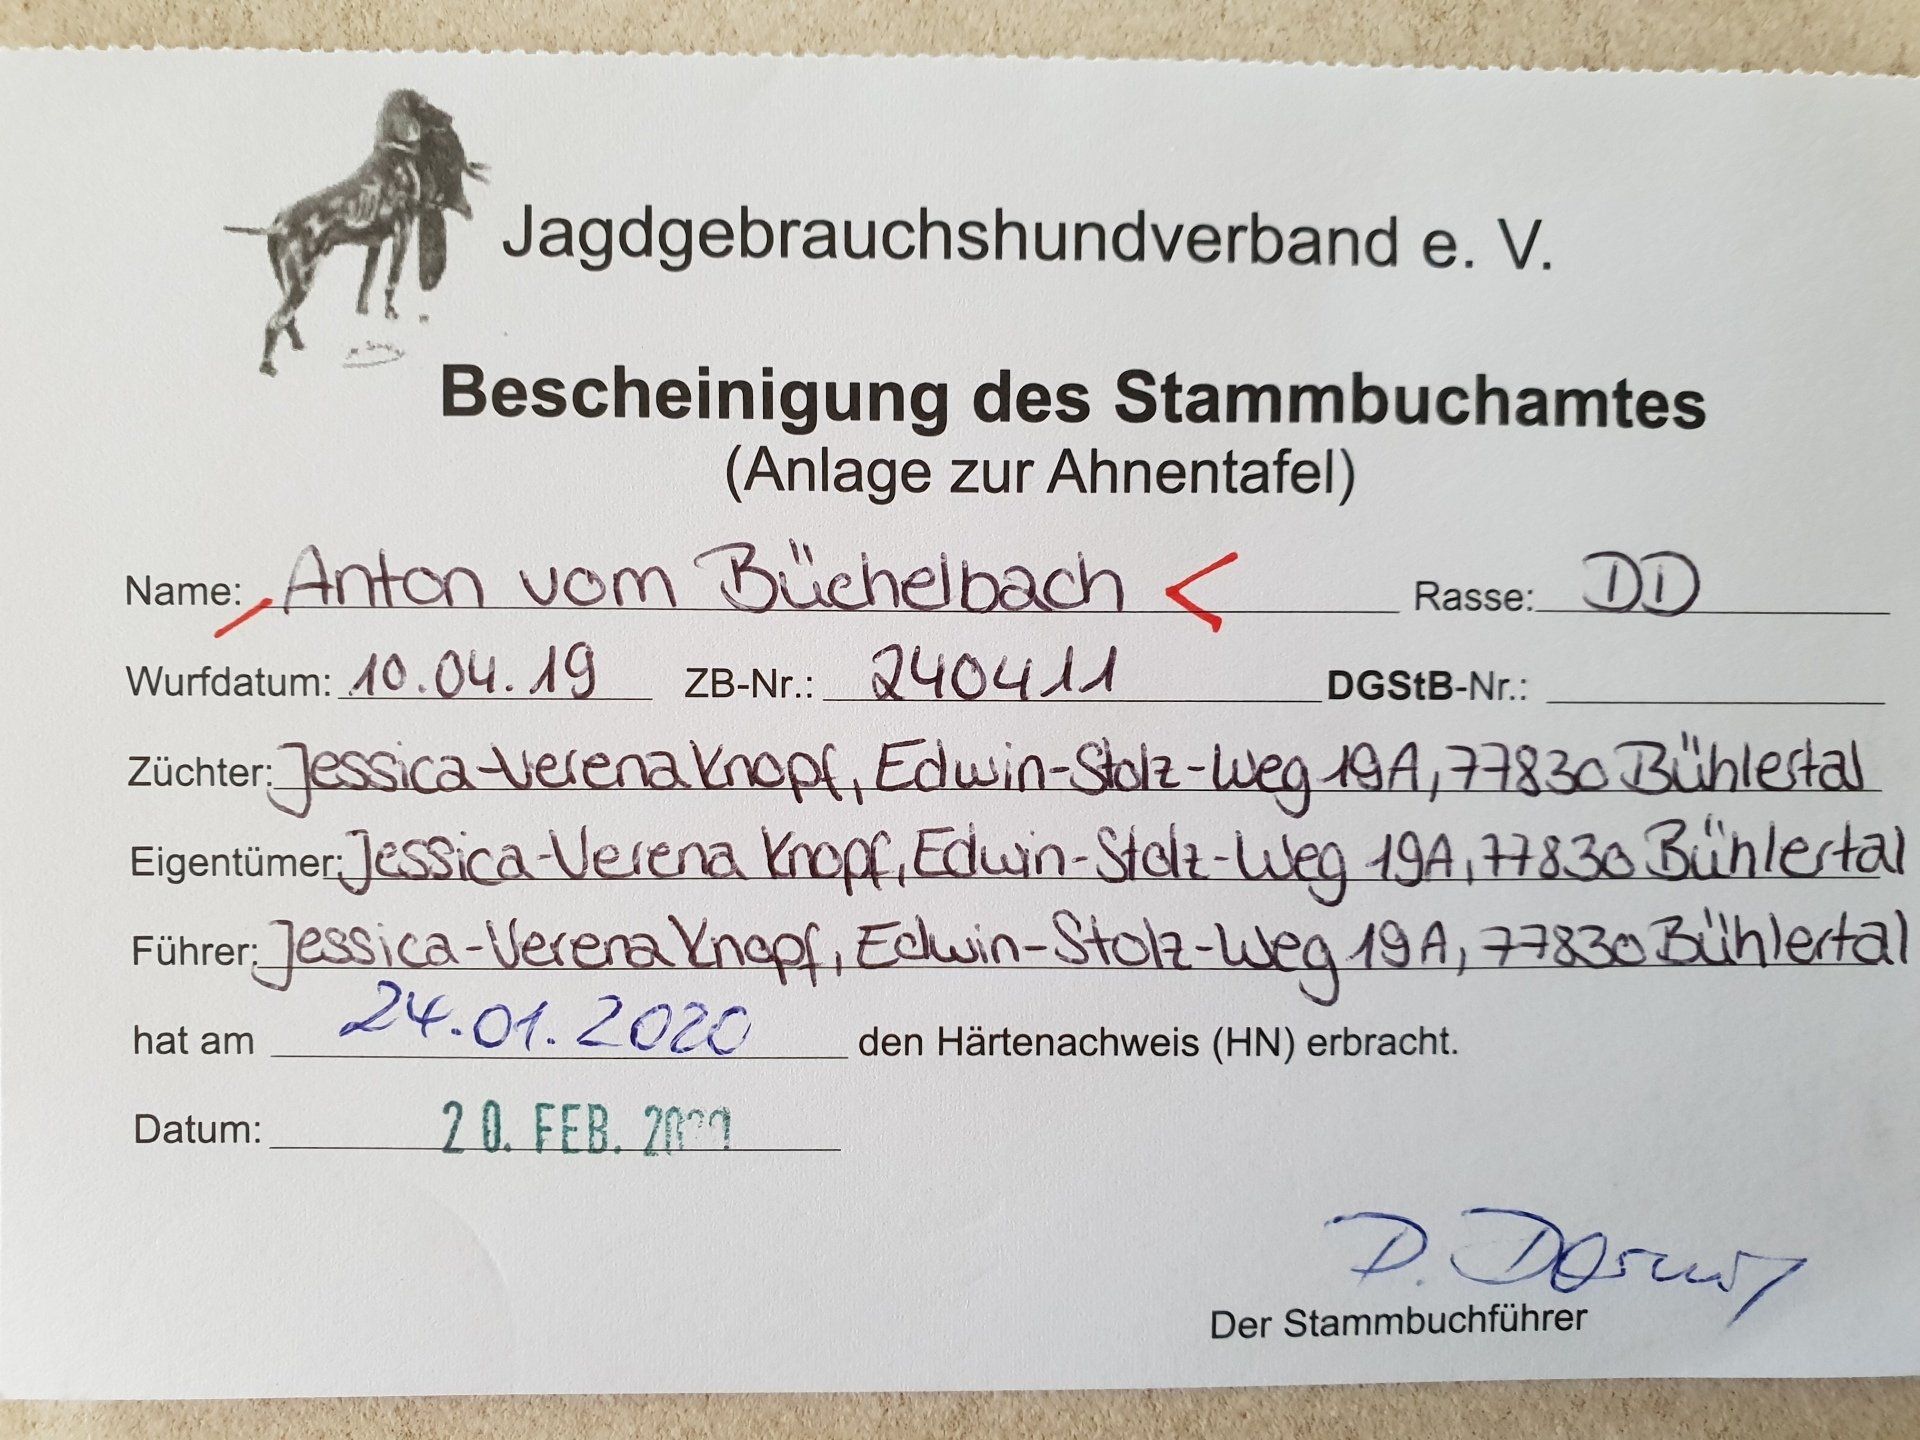 Jagdgebrauchshundverband e. V.
Bescheinigung des Stammbuchamtes
(Anlage zur Ahnentafel)
Name: Anton vom Büchelbach Rasse: DD
Wurfdatum: 10.04.19 ZB-Nr.: 240411 DGStB-Nr.:
Züchter: Jessica-Verena Knopf, Edwin-Stolz-Weg 19A, 77830 Bühlertal
Eigentümer: Jessica-Verena Knopf, Edwin-Stolz-Weg 19A, 77830 Bühlertal
Führer: Jessica-Verena Knopf, Edwin-Stolz-Weg 19A, 77830 Bühlertal
hat am 24.01.2020 den Härtenachweis (HN) erbracht.
Datum: 20. FEB.
D.
Der Stammbuchführer